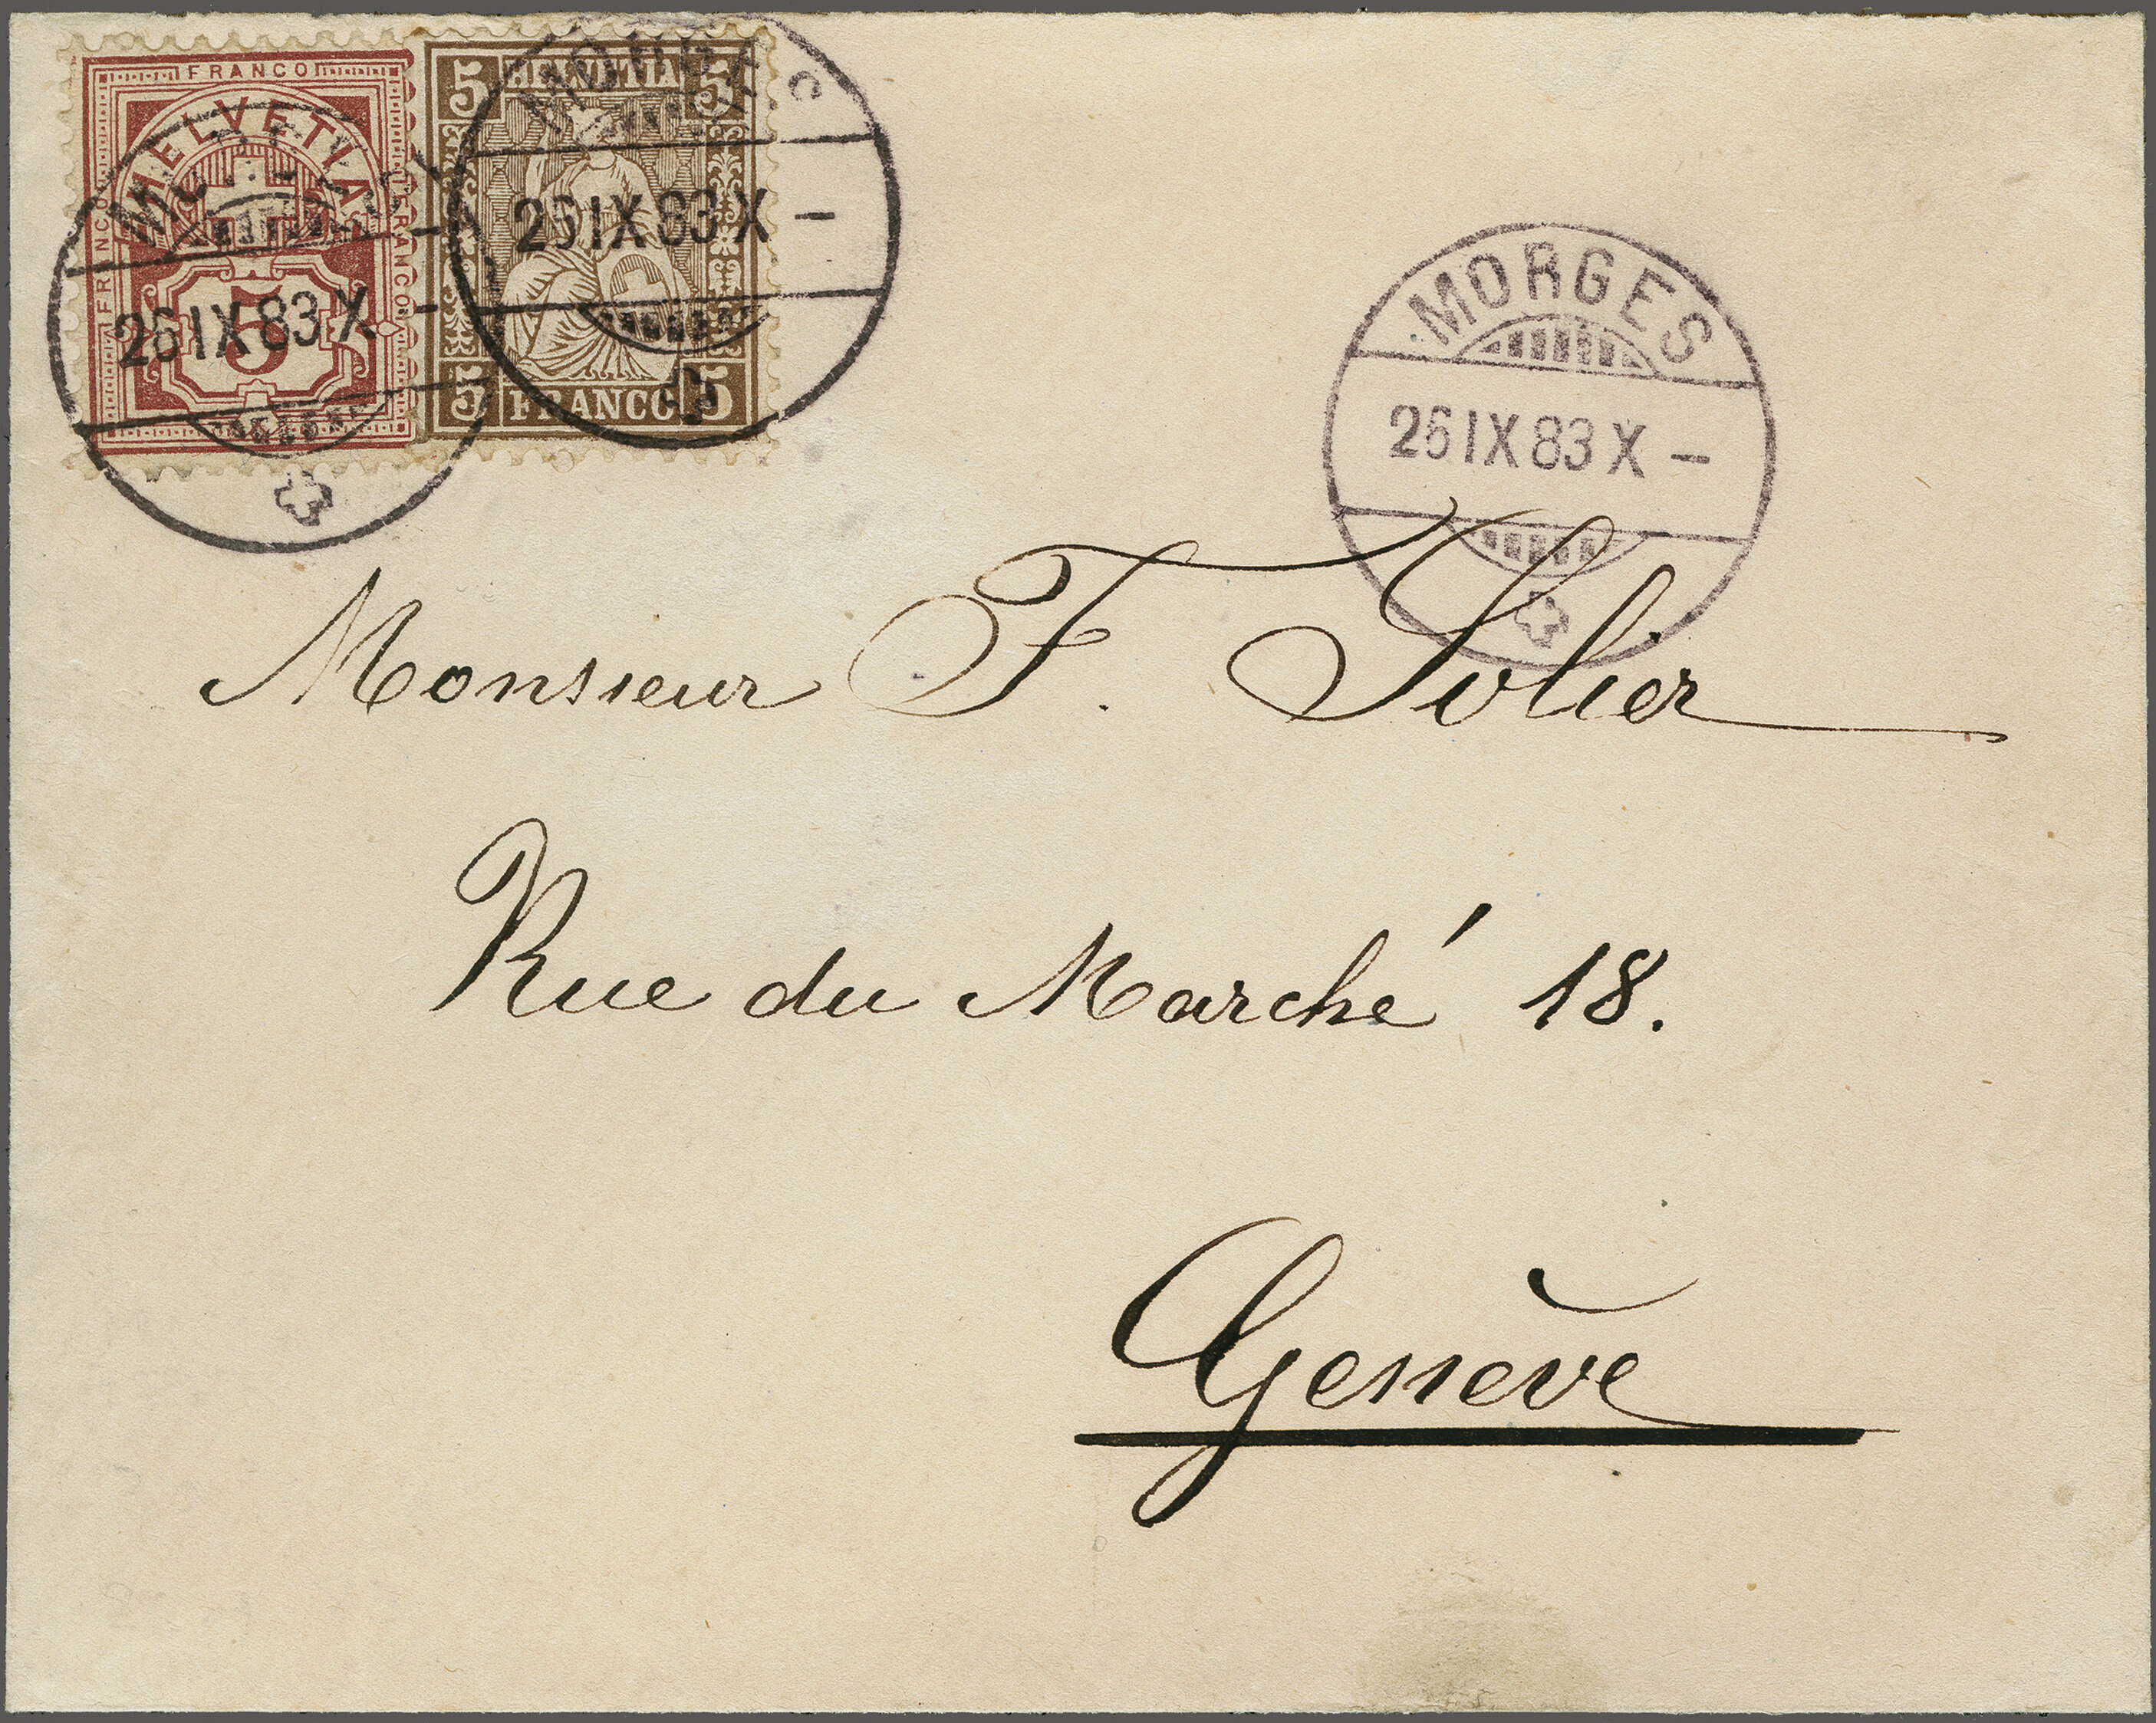 FRANCO
HELVETIA
FRANCO
FRANCO
5
MORGES
26 IX 83 X -
5 HELVETIA 5
5 FRANCO 5
MORGES
26 IX 83 X -
MORGES
26 IX 83 X -
Monsieur F. Solier
Rue du Marché 18.
Genève